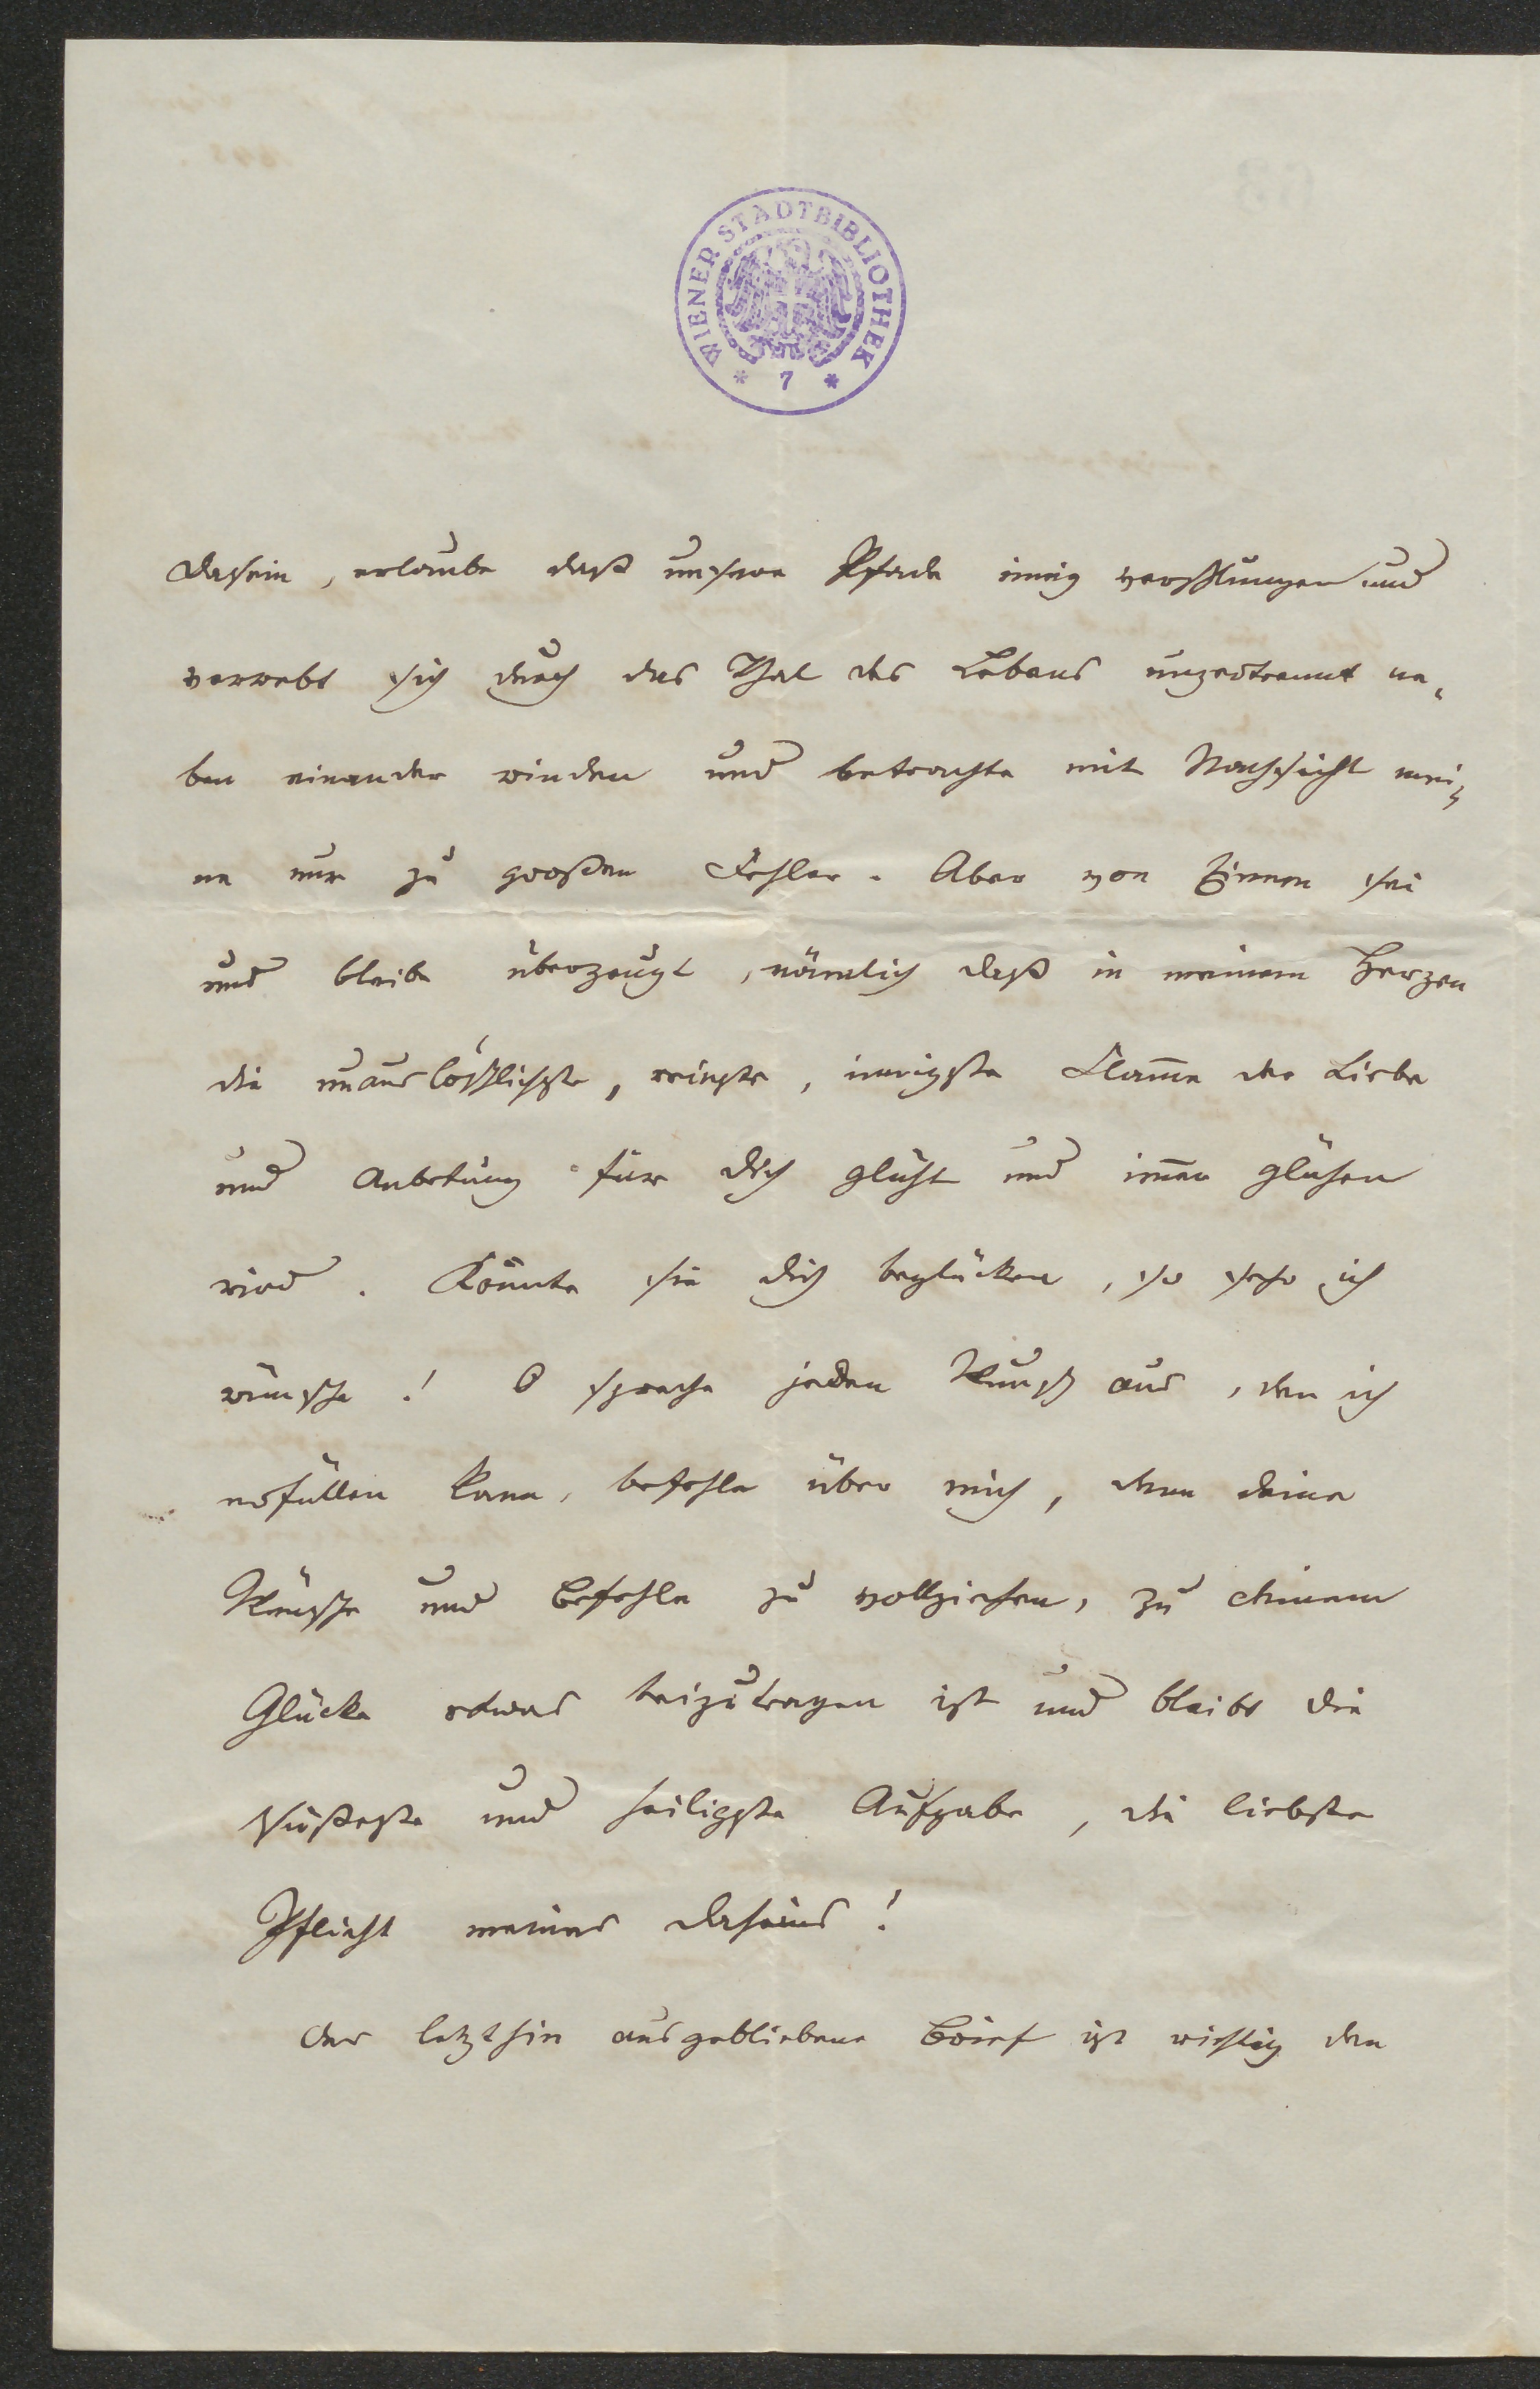 WIENER STADTBIBLIOTHEK
* 7 *
Dasein, erlaube daß unsere Pfade innig verschlungen und
verwebt sich durch das Thal des Lebens unzertrennt ne-
ben einander winden und betrachte mit Nachsicht mei-
ne nur zu großen Fehler. Aber von Einem sei
und bleibe überzeugt, nämlich daß in meinem Herzen
die unauslöschlichste, reinste, innigste Flam̅e der Liebe
und Anbetung für dich glüht und im̅er glühen
wird. Könnte sie dich beglücken, so sehr ich
wünsche! O spreche jeden Wunsch aus, den ich
erfüllen kann, befehle über mich, denn deine
Wünsche und Befehle zu vollziehen, zu deinem
Glücke etwas beizutragen ist und bleibt die
süßeste und heiligste Aufgabe, die liebste
Pflicht meines Daseins!
Der letzthin ausgebliebene Brief ist richtig den